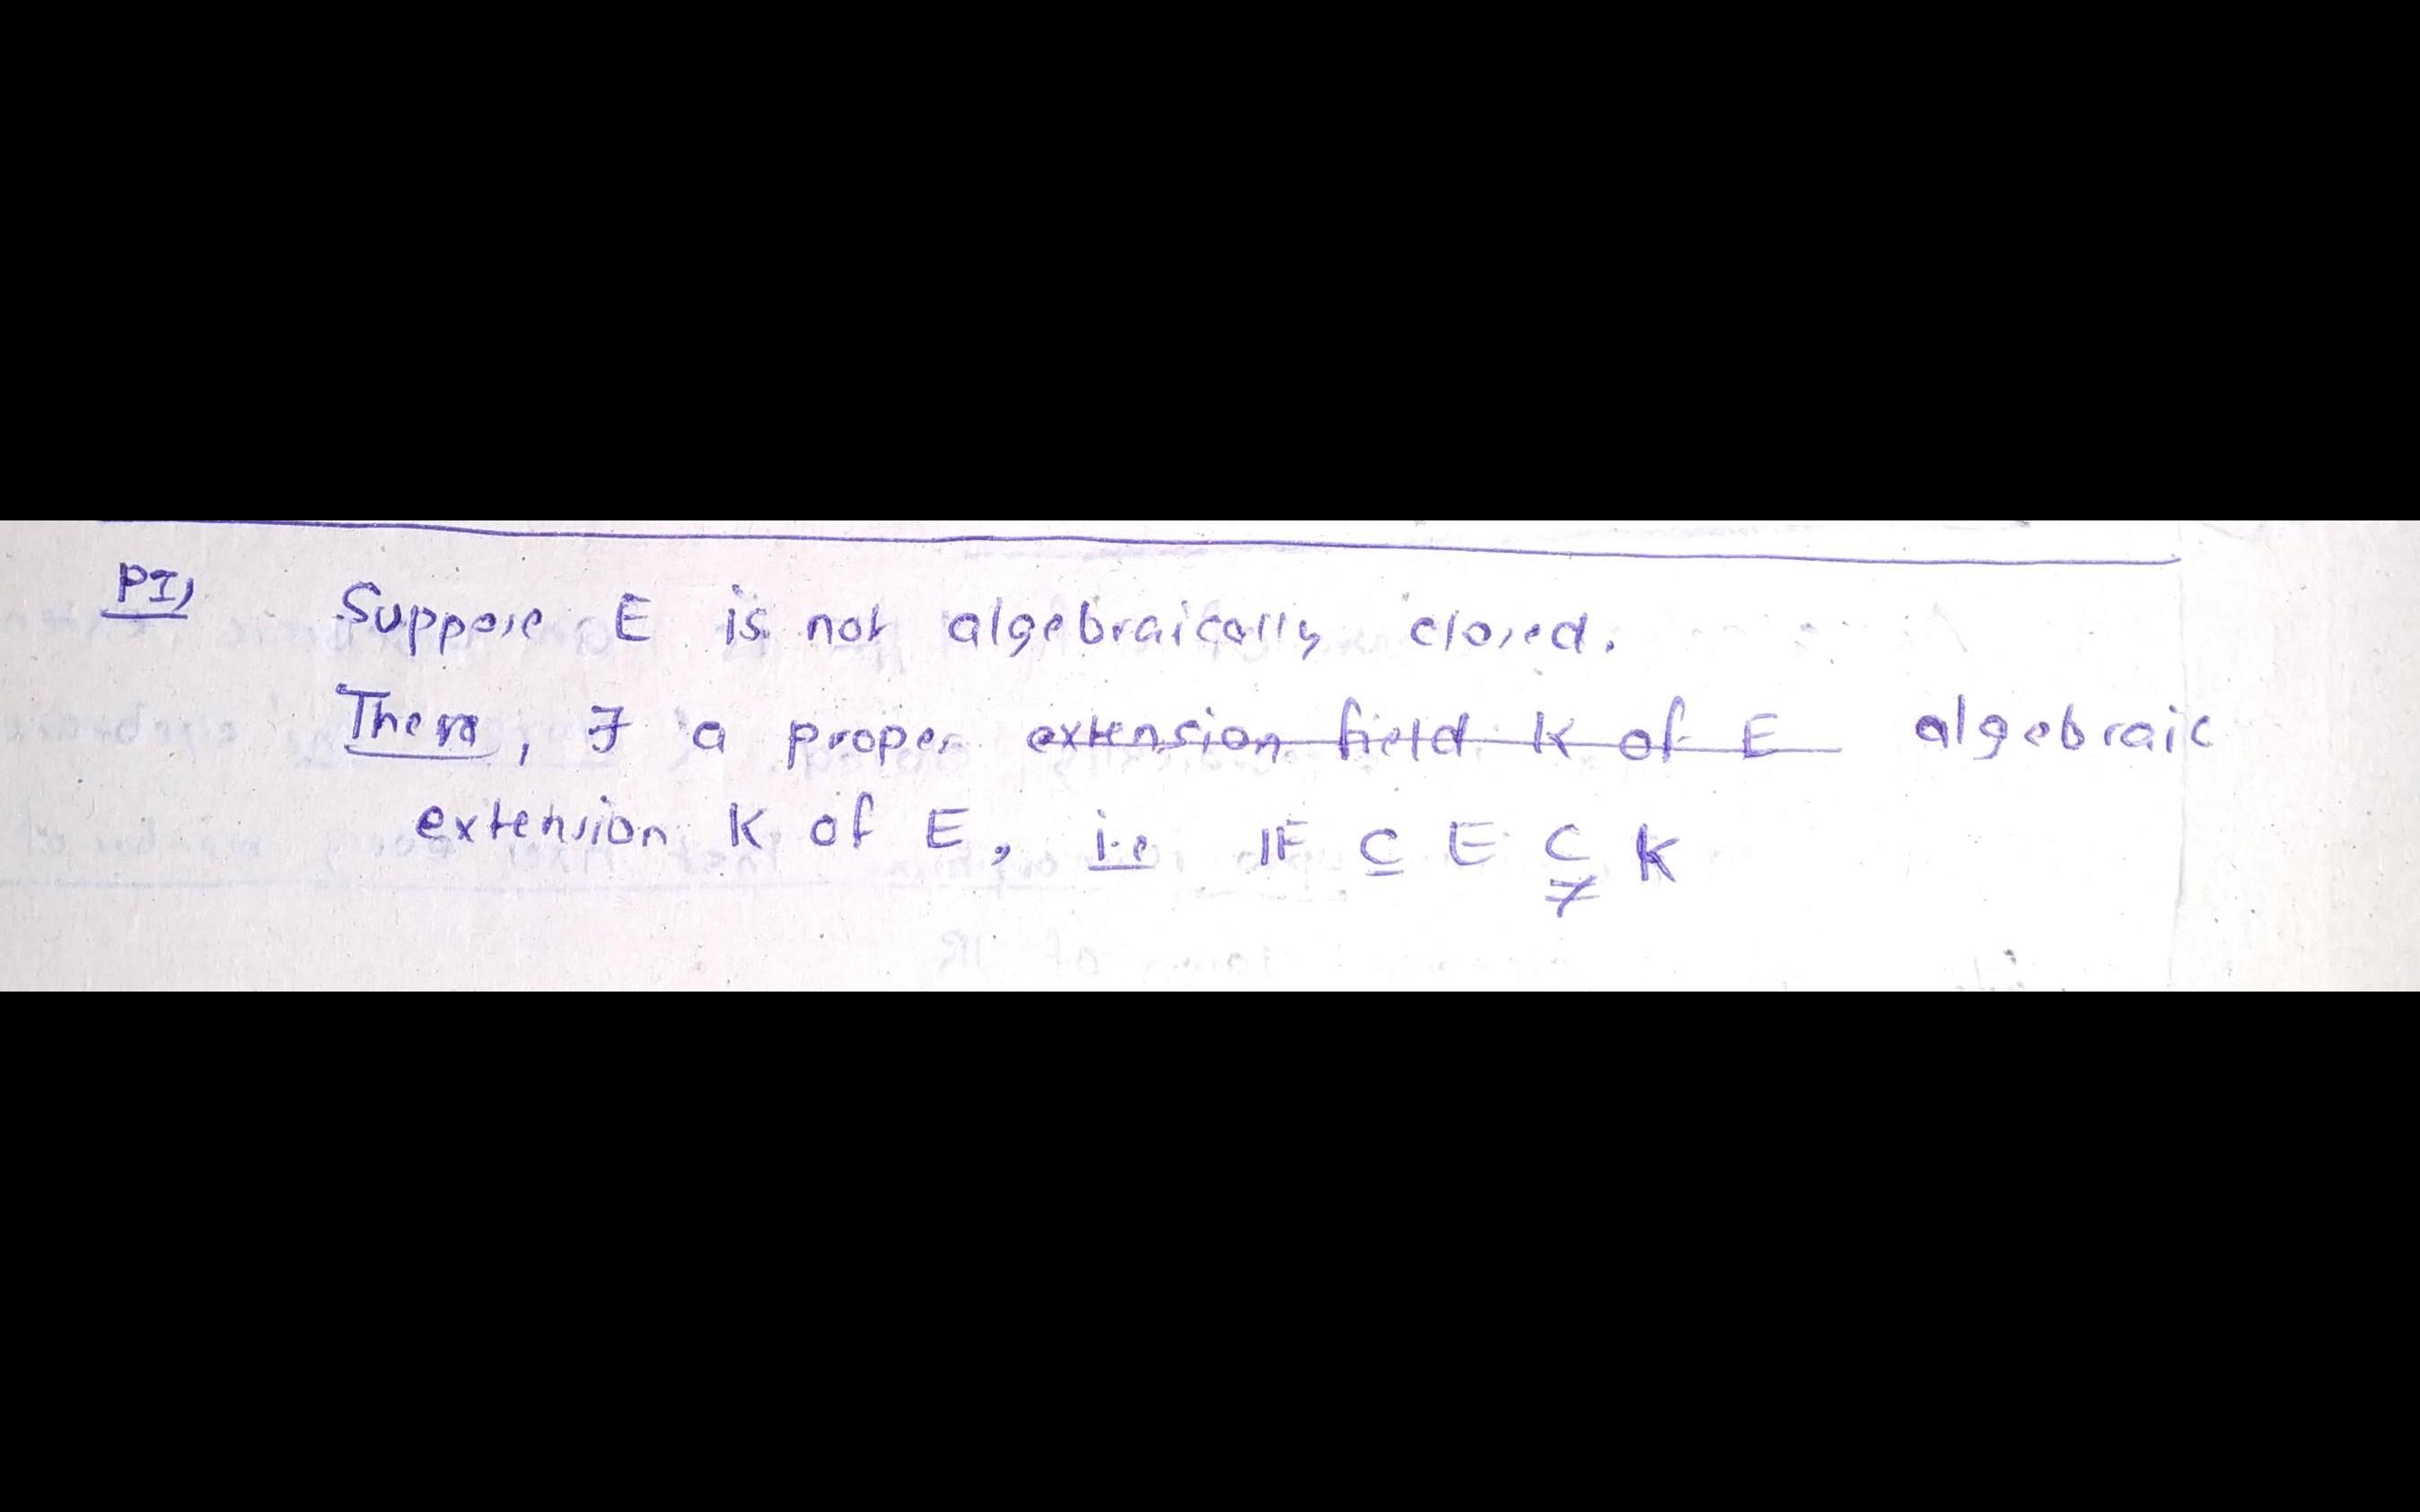 Pf) Suppose E is not algebraically closed.
Then, ∃ a proper extension field K of E algebraic
extension K of E, i.e 𝔽 ⊆ E ⊊ K